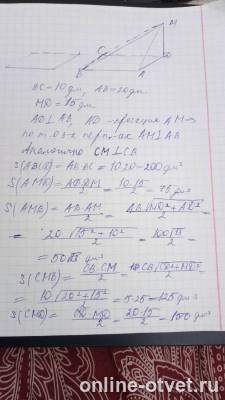 M
C
D
B
A
BC=10дм, AB=20дм
MD=15дм
AD⊥AB, AD - проекция AM ⇒
по т. о 3-х перп-ах AM⊥AB
Аналогично CM⊥CB
S(ABCD)=AB·BC=10·20=200дм²
S(AMD)=AD·DM/2=10·15/2=75дм²
S(AMB)=AB·AM/2=AB√MD²+AD²/2=
=20√15²+10²/2=100√13/2=
=50√13 дм²
S(CMB)=CB·CM/2=CB√CD²+MD²/2=
=10√20²+15²/2=5·25=125дм²
S(CMD)=CD·MD/2=20·15/2=150дм²
online-otvet.ru